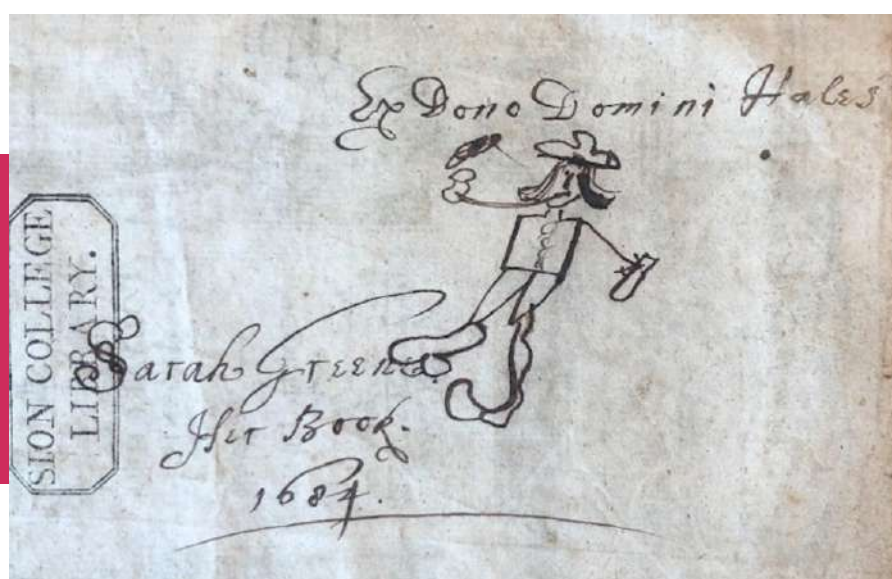 Ex Dono Domini Hales
SION COLLEGE
LIBRARY.
Sarah Greene.
Her Book.
1684.